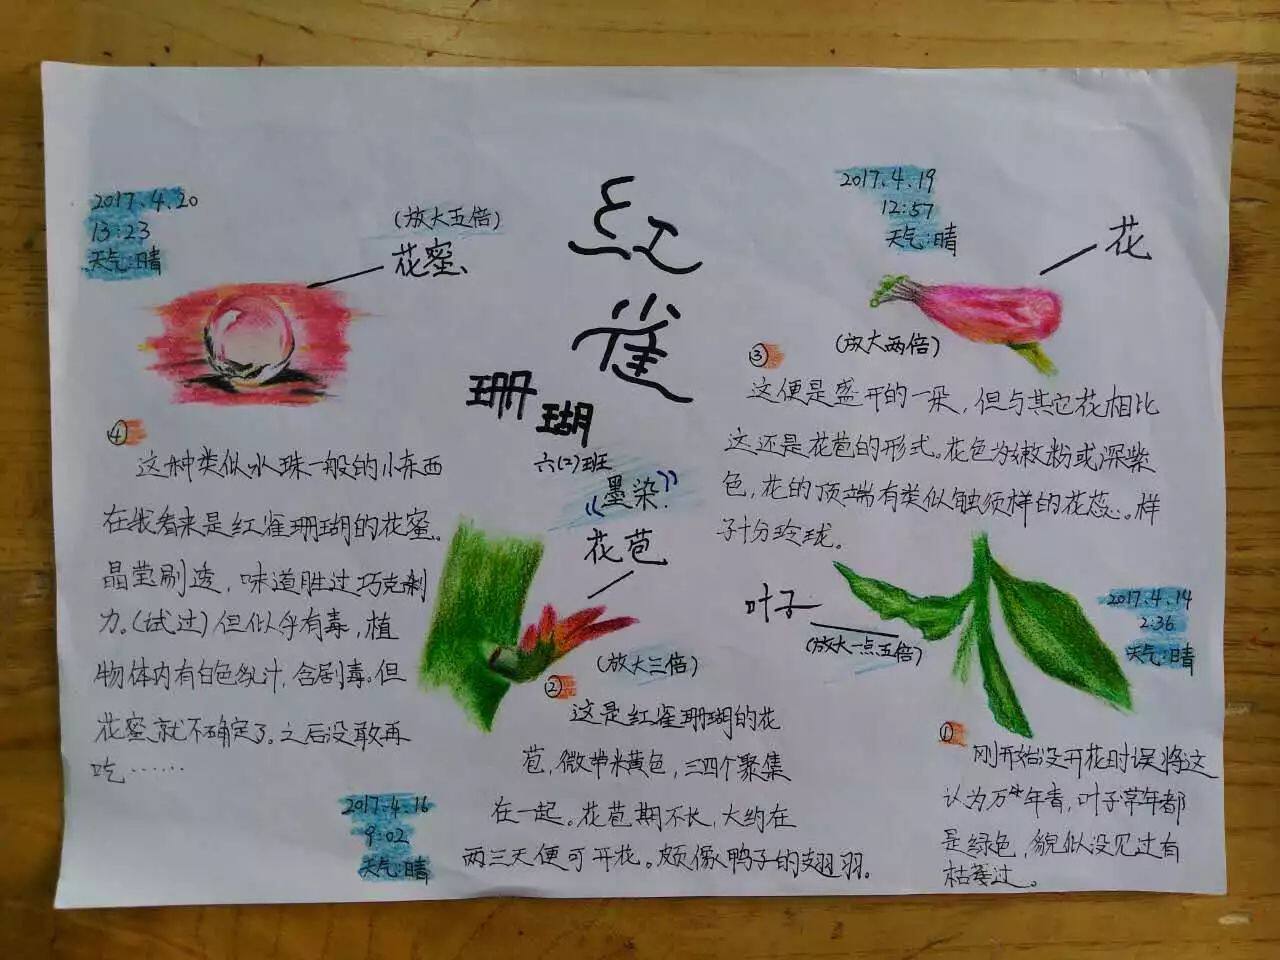 红
雀
珊
瑚
六(2)班
《墨染》
2017.4.14
2:36
天气:晴
叶子
(放大一点五倍)
①
刚开始没开花时误将这
认为万年青,叶子常年都
是绿色,貌似没见过有
枯萎过。
2017.4.16
9:02
天气:晴
花苞
(放大三倍)
②
这是红雀珊瑚的花
苞,微带米黄色,三四个聚集
在一起。花苞期不长,大约在
两三天便可开花。颇像鸭子的翅羽。
2017.4.19
12:57
天气:晴
花
(放大两倍)
③
这便是盛开的一朵,但与其它花相比
这还是花苞的形式。花色为嫩粉或深紫
色,花的顶端有类似触须样的花蕊。样
子十分玲珑。
2017.4.20
13:23
天气:晴
(放大五倍)
花蜜
④
这种类似水珠一般的小东西
在我看来是红雀珊瑚的花蜜。
晶莹剔透,味道胜过巧克
力。(试过)但似乎有毒,植
物体内有白色汁,含剧毒。但
花蜜就不确定了。之后没敢再
吃……